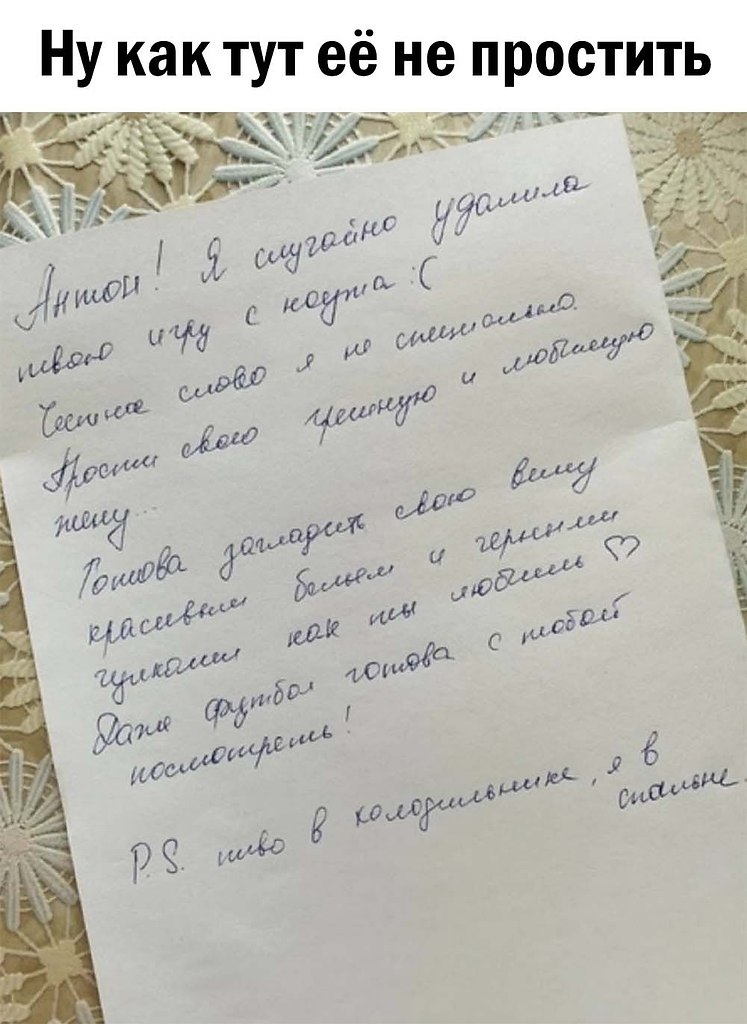 Ну как тут её не простить
Антон! Я случайно удалила
твою игру с ноута :(
Честное слово я не специально.
Прости свою грешную и любимую
жену...
Готова загладить свою вину
красивым бельем и черными
чулками как ты любишь ♡
Даже футбол готова с тобой
посмотреть!
P.S. пиво в холодильнике, я в
спальне.